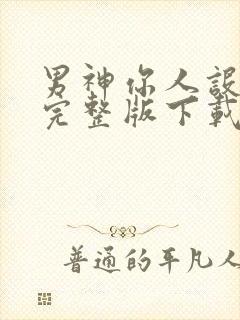 男神你人設
完整版下載
普通的平凡人